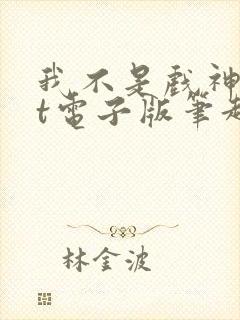 我不是戲神
t電子版筆趣
林金波